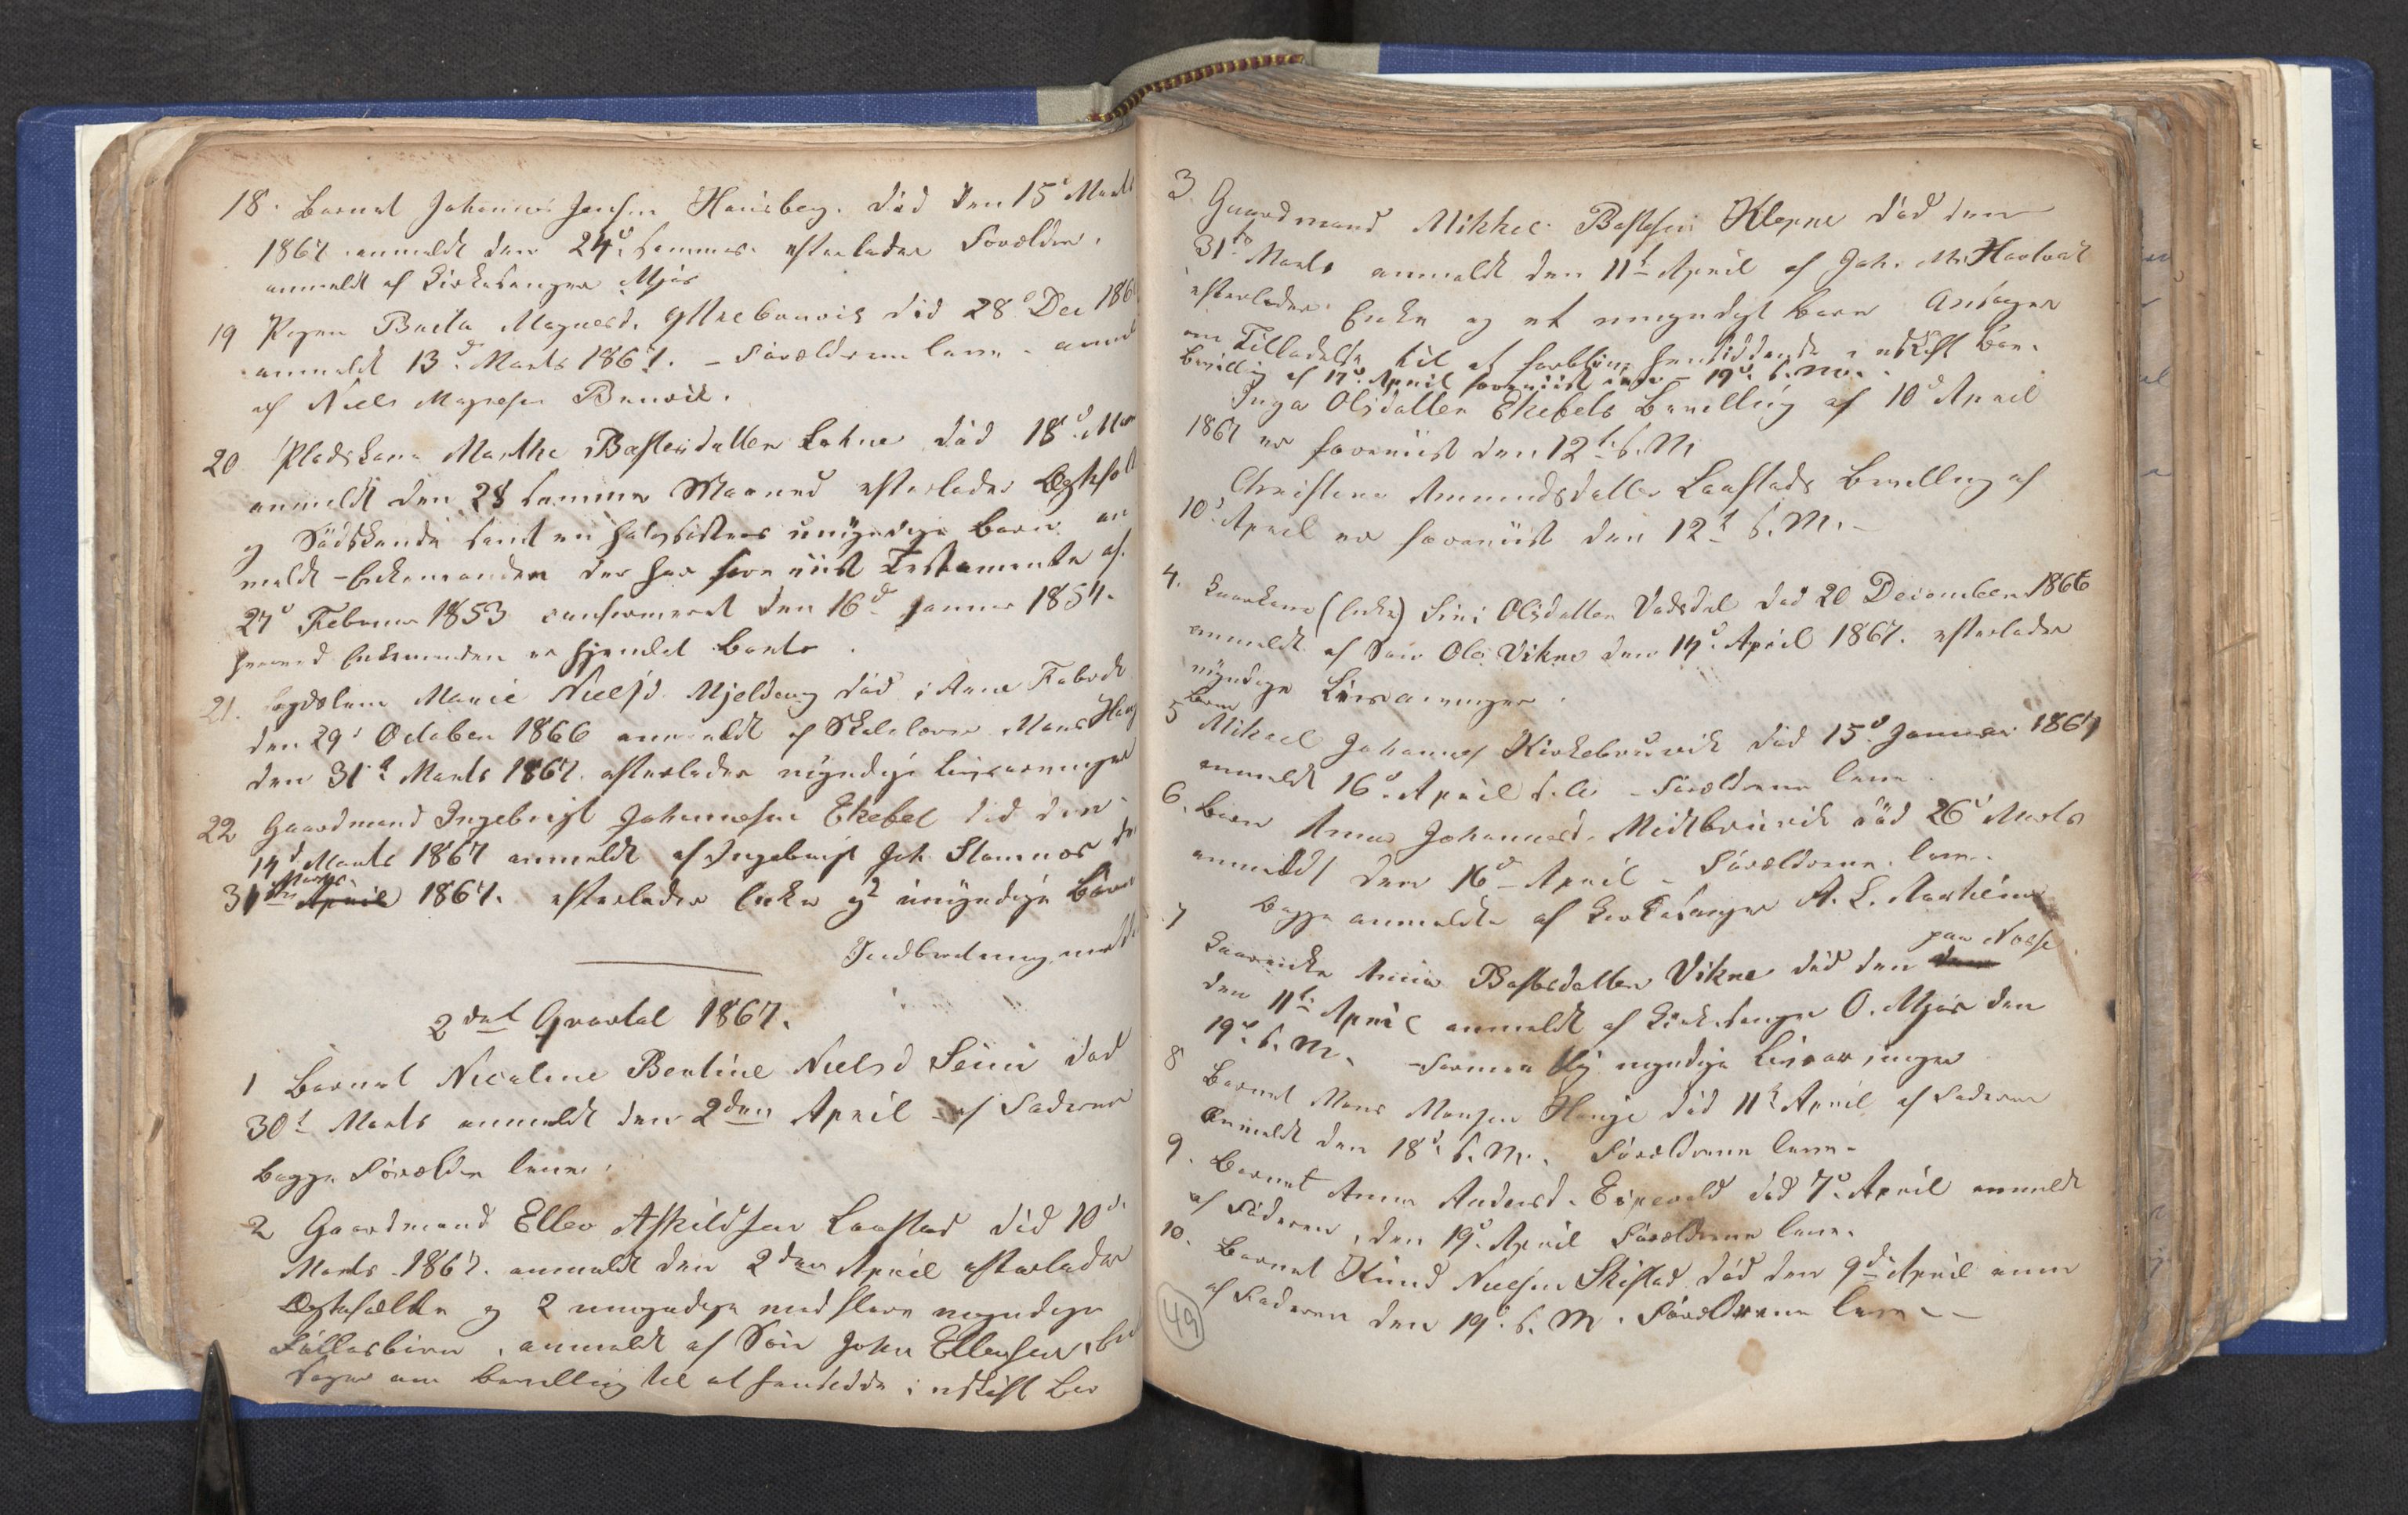 18. Barnet Johannes Jensen Hausberg. død den 15d Marts
1867 anmeldt den 24d. sammes. efterlader Forældre.
anmeldt af Kirkesanger Mjøs
19 Pigen Brita Magnesd. Yttrebruvig død 28d Dec 186
anmeldt 13d. Marts 1867. – Forældrene leve. anm
af Niels Magnesen Bruvik.
20 Pladskone Marthe Bastersdatter Lohne død 18d. Mar
anmeldt den 28 samme Maaned efterlader Ægtefol
og Sødskende samt en halvsøsters umyndige Børn. an
meldt – Enkemanden der har foreviist Testamente af
27d Februar 1853 confirmeret den 16d Januar 1854.
hvorved Enkemanden er hjemlet Boets
21. Lægdslem Marie Nielsd. Mjeldeng død i Arne Fabrik
den 29d October 1866 anmeldt af Skolelærer Mons Haug
den 31d Marts 1867. efterlader myndige Livsarvinger
22 Gaardmand Ingebrigt Johannesen Ekebel død den
14d Marts 1867 anmeldt af Ingebrigt Joh. Stamnes den
31te Marts April 1867. efterlader Enke og 2 umyndige Børn
Indberetning
2det Qvartal 1867.
1 Barnet Nicoline Bertine Nielsd Seim død
30t Marts anmeldt den 2den April af Faderen
begge Forældre leve.
2 Gaardmand Ellev Askildsen Laastad død 10d.
Marts 1867. anmeldt den 2den April efterlader
Ægtefælle og 2 umyndige med flere myndige
Fællesbørn, anmeldt af Søn John Ellevsen,
søger om Bevilling til at hensidde i uskift Bo
3. Gaardmand Mikkel Bastesen Kleppe død den
31te Marts anmeldt den 11t April af Joh. M. Hartvet
efterlader Enke og et umyndigt Barn Ansøger
om Tilladelse til at forblive hensiddende i uskift Boe.
Bevilling af 17d. April foreviist den 19d. s. M.
Inga Olsdatter Ekebels Bevilling af 10d April
1867 er foreviist den 12t. s. M.
Christene Amundsdatter Laastads Bevilling af
10d. April er foreviist den 12t s. M. –
4. Kaarkone (Enke) Siri Olsdatter Vadsdal død 20 December 1866
anmeldt af Søn Ole Vikne den 14d. April 1867. efterlader
myndige Livsarvinger.
5 Barn Mikael Johannes Kirkebruvik død 15d. Januar 1867
anmeldt 16d. April d. A. – Forældrene leve.
6. Barn Anna Johannesd. Midtbruvik død 26d Marts
anmeldt den 16d – April – Forældrene leve.
begge anmeldte af Kirkesanger A. L.
7 Kaarenke Anna Bastesdatter Vikne død den paa Nosse
den 11t. April anmeldt af Kirkesanger O. Mjøs den
19d. s. M. – myndige Livsarvinger
8 Barnet Mons Monsen Hauge død 11t April af Faderen
Anmeldt den 18d. s. M. Forældrene leve –
9. Barnet Anna Andersd. Espevold død 7d. April anmeldt
af Faderen, den 19d. April Forældrene leve.
10. Barnet Knud Nielsen Skistad død den 9de April anm
af Faderen den 19d. s. M. Forældrene leve –
49